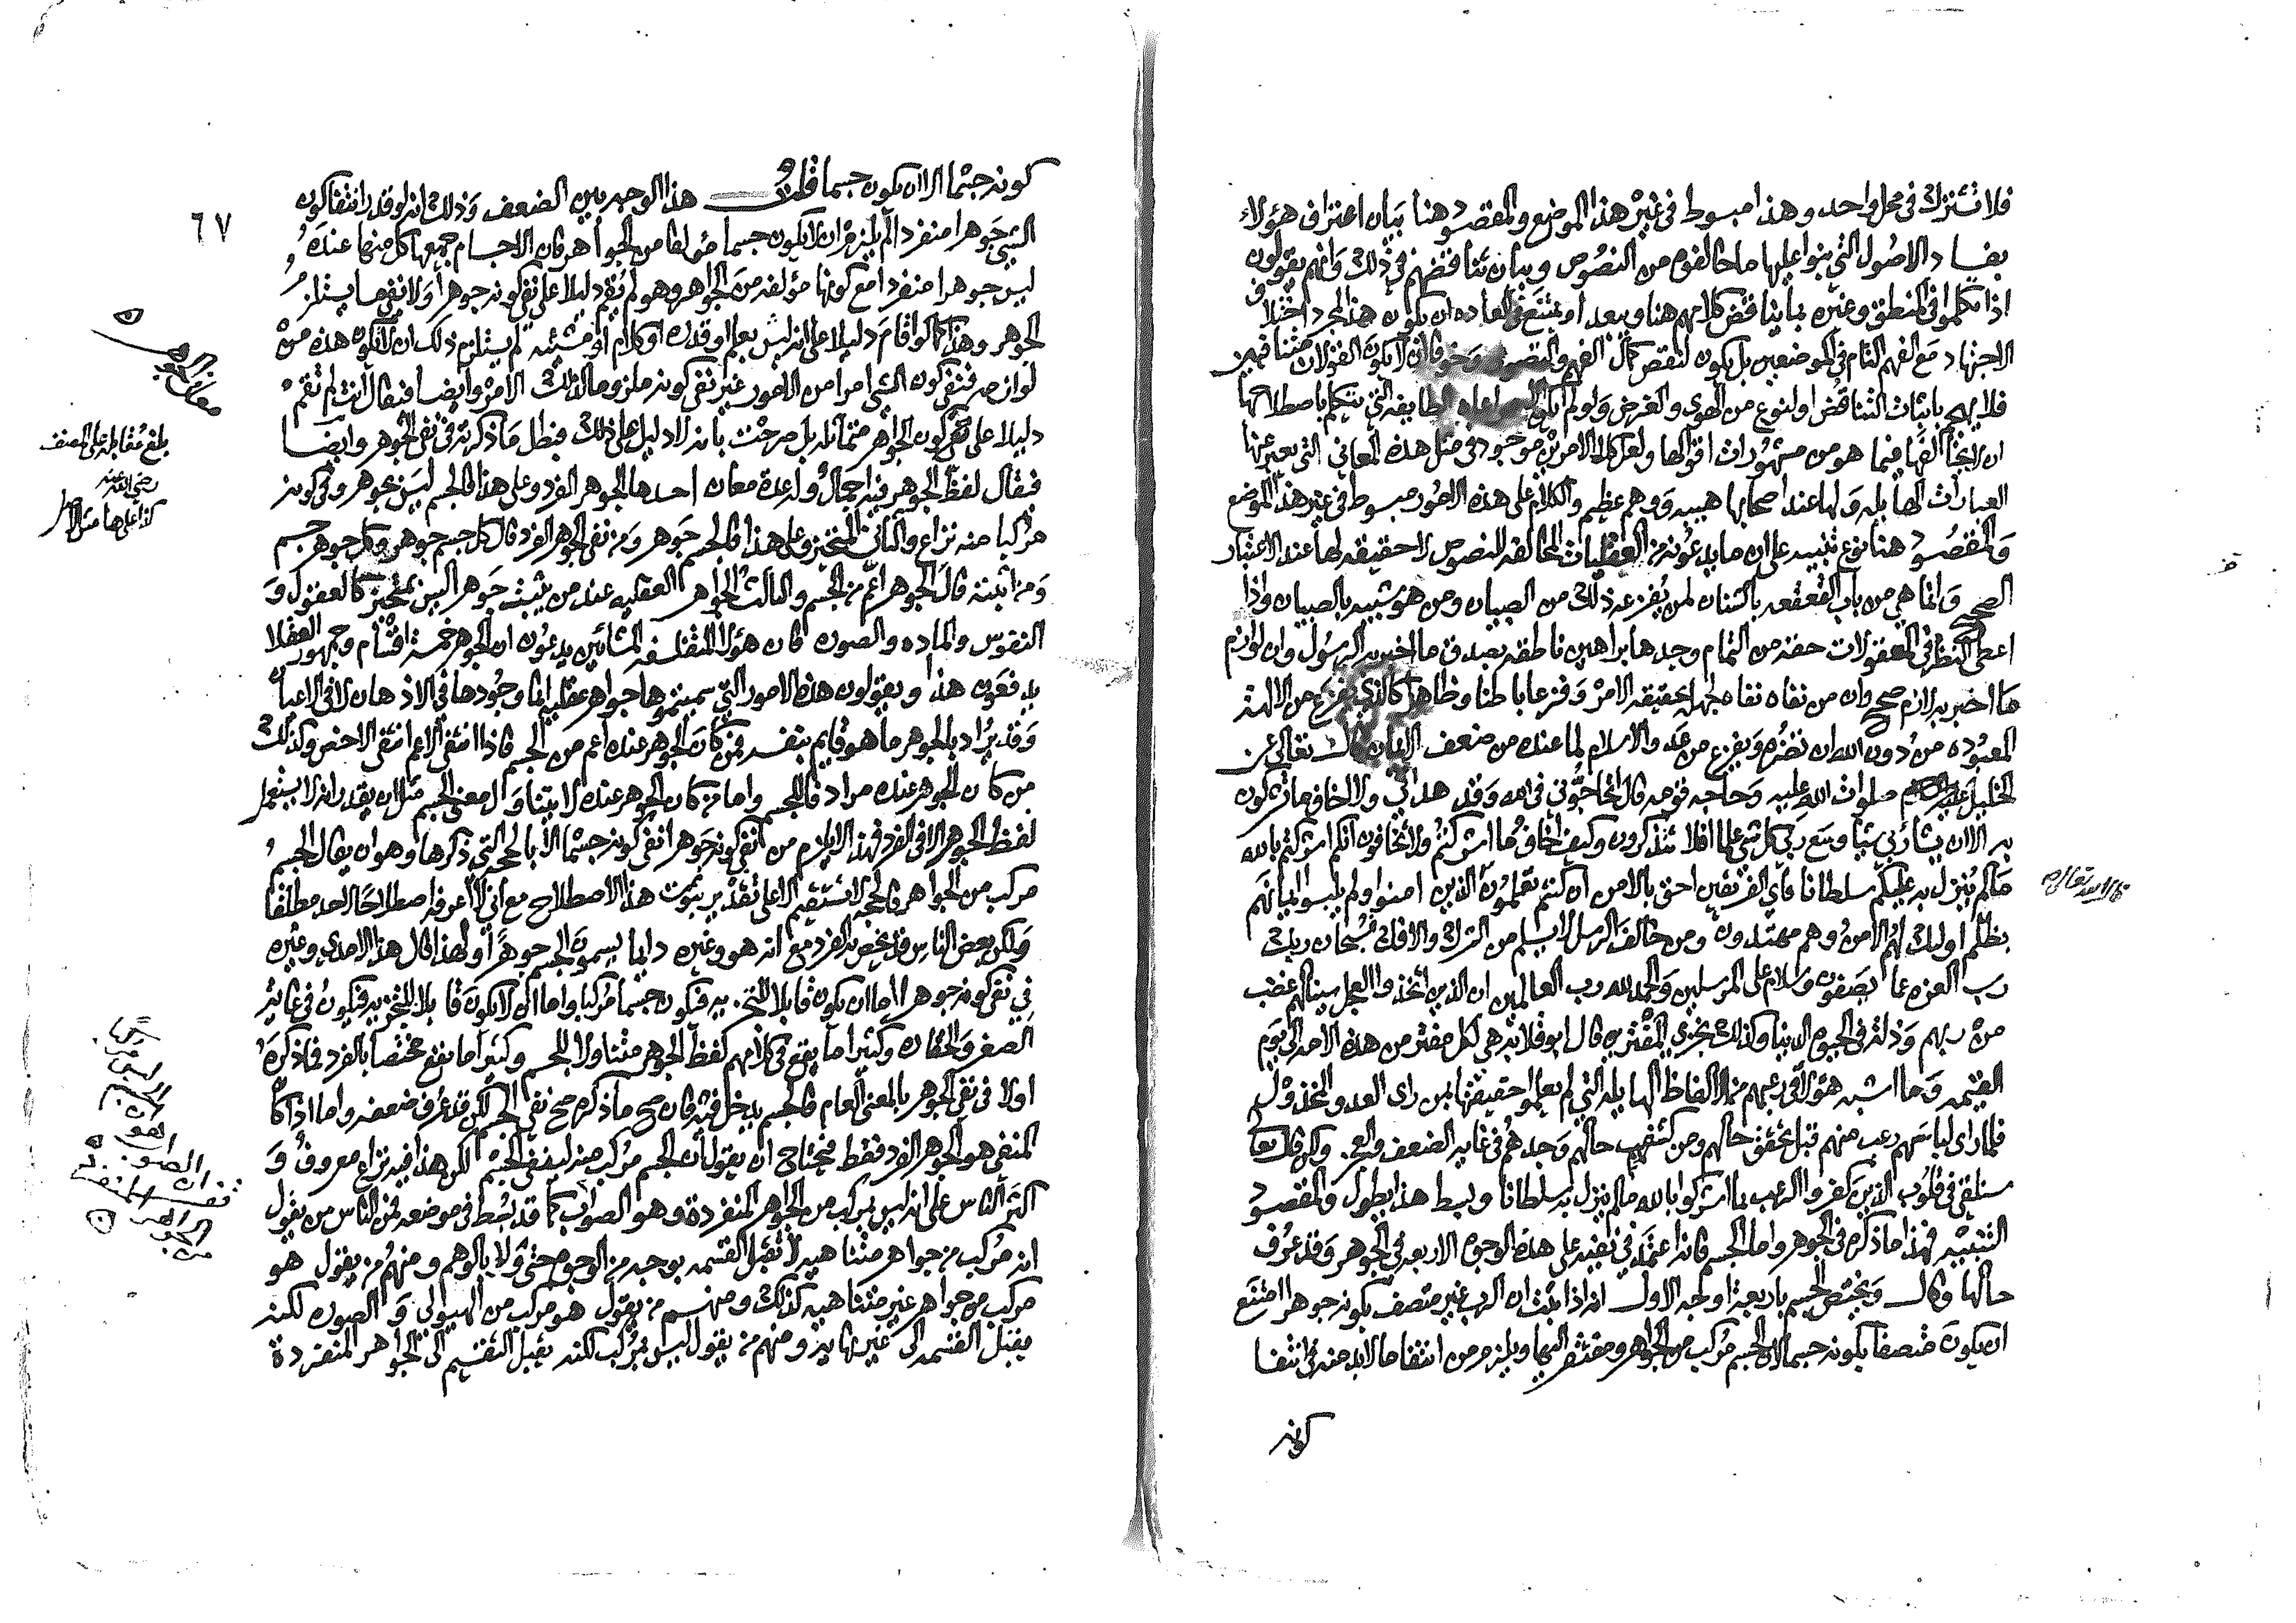 فلا تشترك في محل واحد وهذا مبسوط في غير هذا الموضع والمقصود هنا بيان اعتراف هؤلاء
بفساد الاصول التي بنوا عليها ما خالفوه من النصوص وبيان تناقضهم في ذلك وانهم يقولون
اذا تكلموا في المنطق وغيره بما يناقض كلامهم هنا وبعد او يمتنع في العاده ان يكون هذا لمجرد اختلاف
الاجتهاد مع الفهم التام في الموضعين بل يكون لنقص كمال الفهم والتصور وخوفا ان لا يكون القولان متنافيين
فلا يهجم باثبات التناقض او لنوع من الهوى والغرض ولو لم يكن الطايفه التي يتكلم باصطلاحها
ان لا يخالفها فيما هو من مشهورات اقوالها ولعل كلا الامرين موجود في مثل هذه المعاني التي يعبر عنها
العبارات الهايله ولها عند اصحابها هيبه ووهم عظيم والكلام على هذه الامور مبسوط في غير هذا الموضع
والمقصود هنا نوع تنبيه على ان ما يدعونه من العقليات المخالفه للنصوص لا حقيقه لها عند الاعتبار
الصحيح وانما هي من باب القعقعه بالشنان لمن يفزعه ذلك من الصبيان ومن هو شبيه بالصبيان واذا
اعطى النظر في المعقولات حقه من التمام وجدها براهين ناطقه بصدق ما اخبر به الرسول وان لوازم
ما اخبر به لازم صحيح وان من نفاه نفاه لجهله بحقيقه الامر وفزعا باطنا وظاهرا كالذي يفزع من الالهة
المعبوده من دون الله ان تضره ويفزع من عدو الاسلام لما عنده من ضعف الايمان قال تعالى عن
الخليل صلوات الله عليه وحاجه قومه قال اتحاجوني في الله وقد هداني ولا اخاف ما تشركون
به الا ان يشا ربي شيا وسع ربي كل شي علما افلا تتذكرون وكيف اخاف ما اشركتم ولا تخافون انكم اشركتم بالله
ما لم ينزل به عليكم سلطانا فاي الفريقين احق بالامن ان كنتم تعلمون الذين امنوا ولم يلبسوا ايمانهم
بظلم اولئك لهم الامن وهم مهتدون ومن خالف الرسل لا يسلم من الشرك والافك سبحان ربك
رب العزه عما يصفون وسلام على المرسلين والحمد لله رب العالمين ان الذين اتخذوا العجل سينالهم غضب
من ربهم وذلة في الحيوه الدنيا وكذلك نجزي المفترين قال ابو قلابه هي لكل مفتر من هذه الامه الى يوم
القيمه وما اشبه هؤلا في رعبهم من الالفاظ الهايله التي لم يعلموا حقيقتها بمن راى العدو المخذول
فلما راى لباسهم رعب منهم قبل تحقق حالهم ومن كشف حالهم وجدهم في غايه الضعف والعجز ولكن قال تعالى
سنلقي في قلوب الذين كفروا الرعب بما اشركوا بالله ما لم ينزل به سلطانا وبسط هذا يطول والمقصود
التنبيه فهذا ما ذكره في الجوهر واما الجسم فانه اعتمد في نفيه على هذه الوجوه الاربعه في الجوهر وقد عرف
حالها وقال ويختص الجسم باربعة اوجه الاول انه اذا ثبت ان الرب غير متصف بكونه جوهرا امتنع
ان يكون متصفا بكونه جسما لان الجسم مركب من الجواهر ومفتقر اليها ويلزم من انتفا ما لا بد منه في انتفا
كونه
كونه جسما الا ان يكون جسما قلت هذا الوجه بين الضعف وذلك انه لو قدر انتفا كون
الشي جوهرا منفردا لم يلزم ان لا يكون جسما مؤلفا من الجواهر فان الاجسام جميعها كل منها عنده
ليس جوهرا منفردا مع كونها مؤلفه من الجواهر وهو لم يقم دليلا على نفي كونه جوهرا ولا نفي ما يستلزم
الجوهر وهذا كما لو اقام دليلا على انه ليس بعلم او قدره او كلام او مشيئه لم يستلزم ذلك ان لا تكون هذه من
لوازمه فنفي كون الشي امرا من الامور غير نفي كونه ملزوما لذلك الامر وايضا فيقال انت لم تقم
دليلا على نفي كون الجواهر متماثله بل صرحت بانه لا دليل على ذلك فبطل ما ذكرته في نفي الجوهر وايضا
فيقال لفظ الجوهر فيه اجمال وله عدة معان احدها الجوهر الفرد وعلى هذا فالجسم ليس بجوهر وفي كونه
مركبا منه نزاع والثاني المتحيز وعلى هذا فالجسم جوهر ومن نفى الجوهر الفرد قال كل جسم جوهر وكل جوهر جسم
ومن اثبته قال الجوهر اعم من الجسم والثالث الجواهر العقليه عند من يثبت جوهرا ليس بمتحيز كالعقول و
النفوس والماده والصوره فان هؤلا المتفلسفه المشائين يدعون ان الجوهر خمسة اقسام وجمهور العقلا
يدفعون هذا ويقولون هذه الامور التي سميتموها جواهر عقليه انما وجودها في الاذهان لا في الاعيان
وقد يراد بالجوهر ما هو قايم بنفسه فمن كان الجوهر عنده اعم من الجسم فاذا انتفى الاعم انتفى الاخص وكذلك
من كان الجوهر عنده مرادفا للجسم واما من كان الجوهر عنده لا يتناول معنى الجسم مثل ان يقدر انه لا يستعمل
لفظ الجوهر الا في الفرد فهذا لا يلزم من نفي كونه جوهرا نفي كونه جسما الا بالحجه التي ذكرها وهو ان يقال الجسم
مركب من الجواهر فالحجه لا تستقيم الا على تقدير ثبوت هذا الاصطلاح مع اني لا اعرفه اصطلاحا لاحد مطلقا
ولكن بعض الناس قد يخص به الفرد مع انه هو وغيره دايما يسمون الجسم جوهرا ولهذا قال هذا الامدي وغيره
في نفي كونه جوهرا اما ان يكون قابلا للتحيز به فيكون جسما مركبا واما ان لا يكون قابلا للتحيز به فيكون في غاية
الصغر والحقاره وكثيرا ما يقع في كلامهم لفظ الجوهر متناولا للجسم وكثيرا ما يقع مختصا بالفرد فما ذكره
اولا في نفي الجوهر بالمعنى العام فالجسم يدخل فيه فان صح ما ذكره صح نفي الجسم لكن قد عرف ضعفه واما اذا كان
المنفي هو الجوهر الفرد فقط فيحتاج ان يقول ان الجسم مركب منه لينفي الجسم لكن هذا فيه نزاع معروف و
اكثر الناس على انه ليس بمركب من الجواهر المنفردة وهو الصواب كما قد بسط في موضعه فمن الناس من يقول
انه مركب من جواهر متناهيه لا تقبل القسمه بوجه من الوجوه حتى ولا بالوهم ومنهم من يقول هو
مركب من جواهر غير متناهيه كذلك ومنهم من يقول هو مركب من الهيولى والصوره لكنه
يقبل القسمه الى غير نهاية ومنهم من يقول ليس بمركب لكنه يقبل التقسيم الى الجواهر المنفردة
٦٧
بلغ مقابله على المصنف
رضي الله عنه